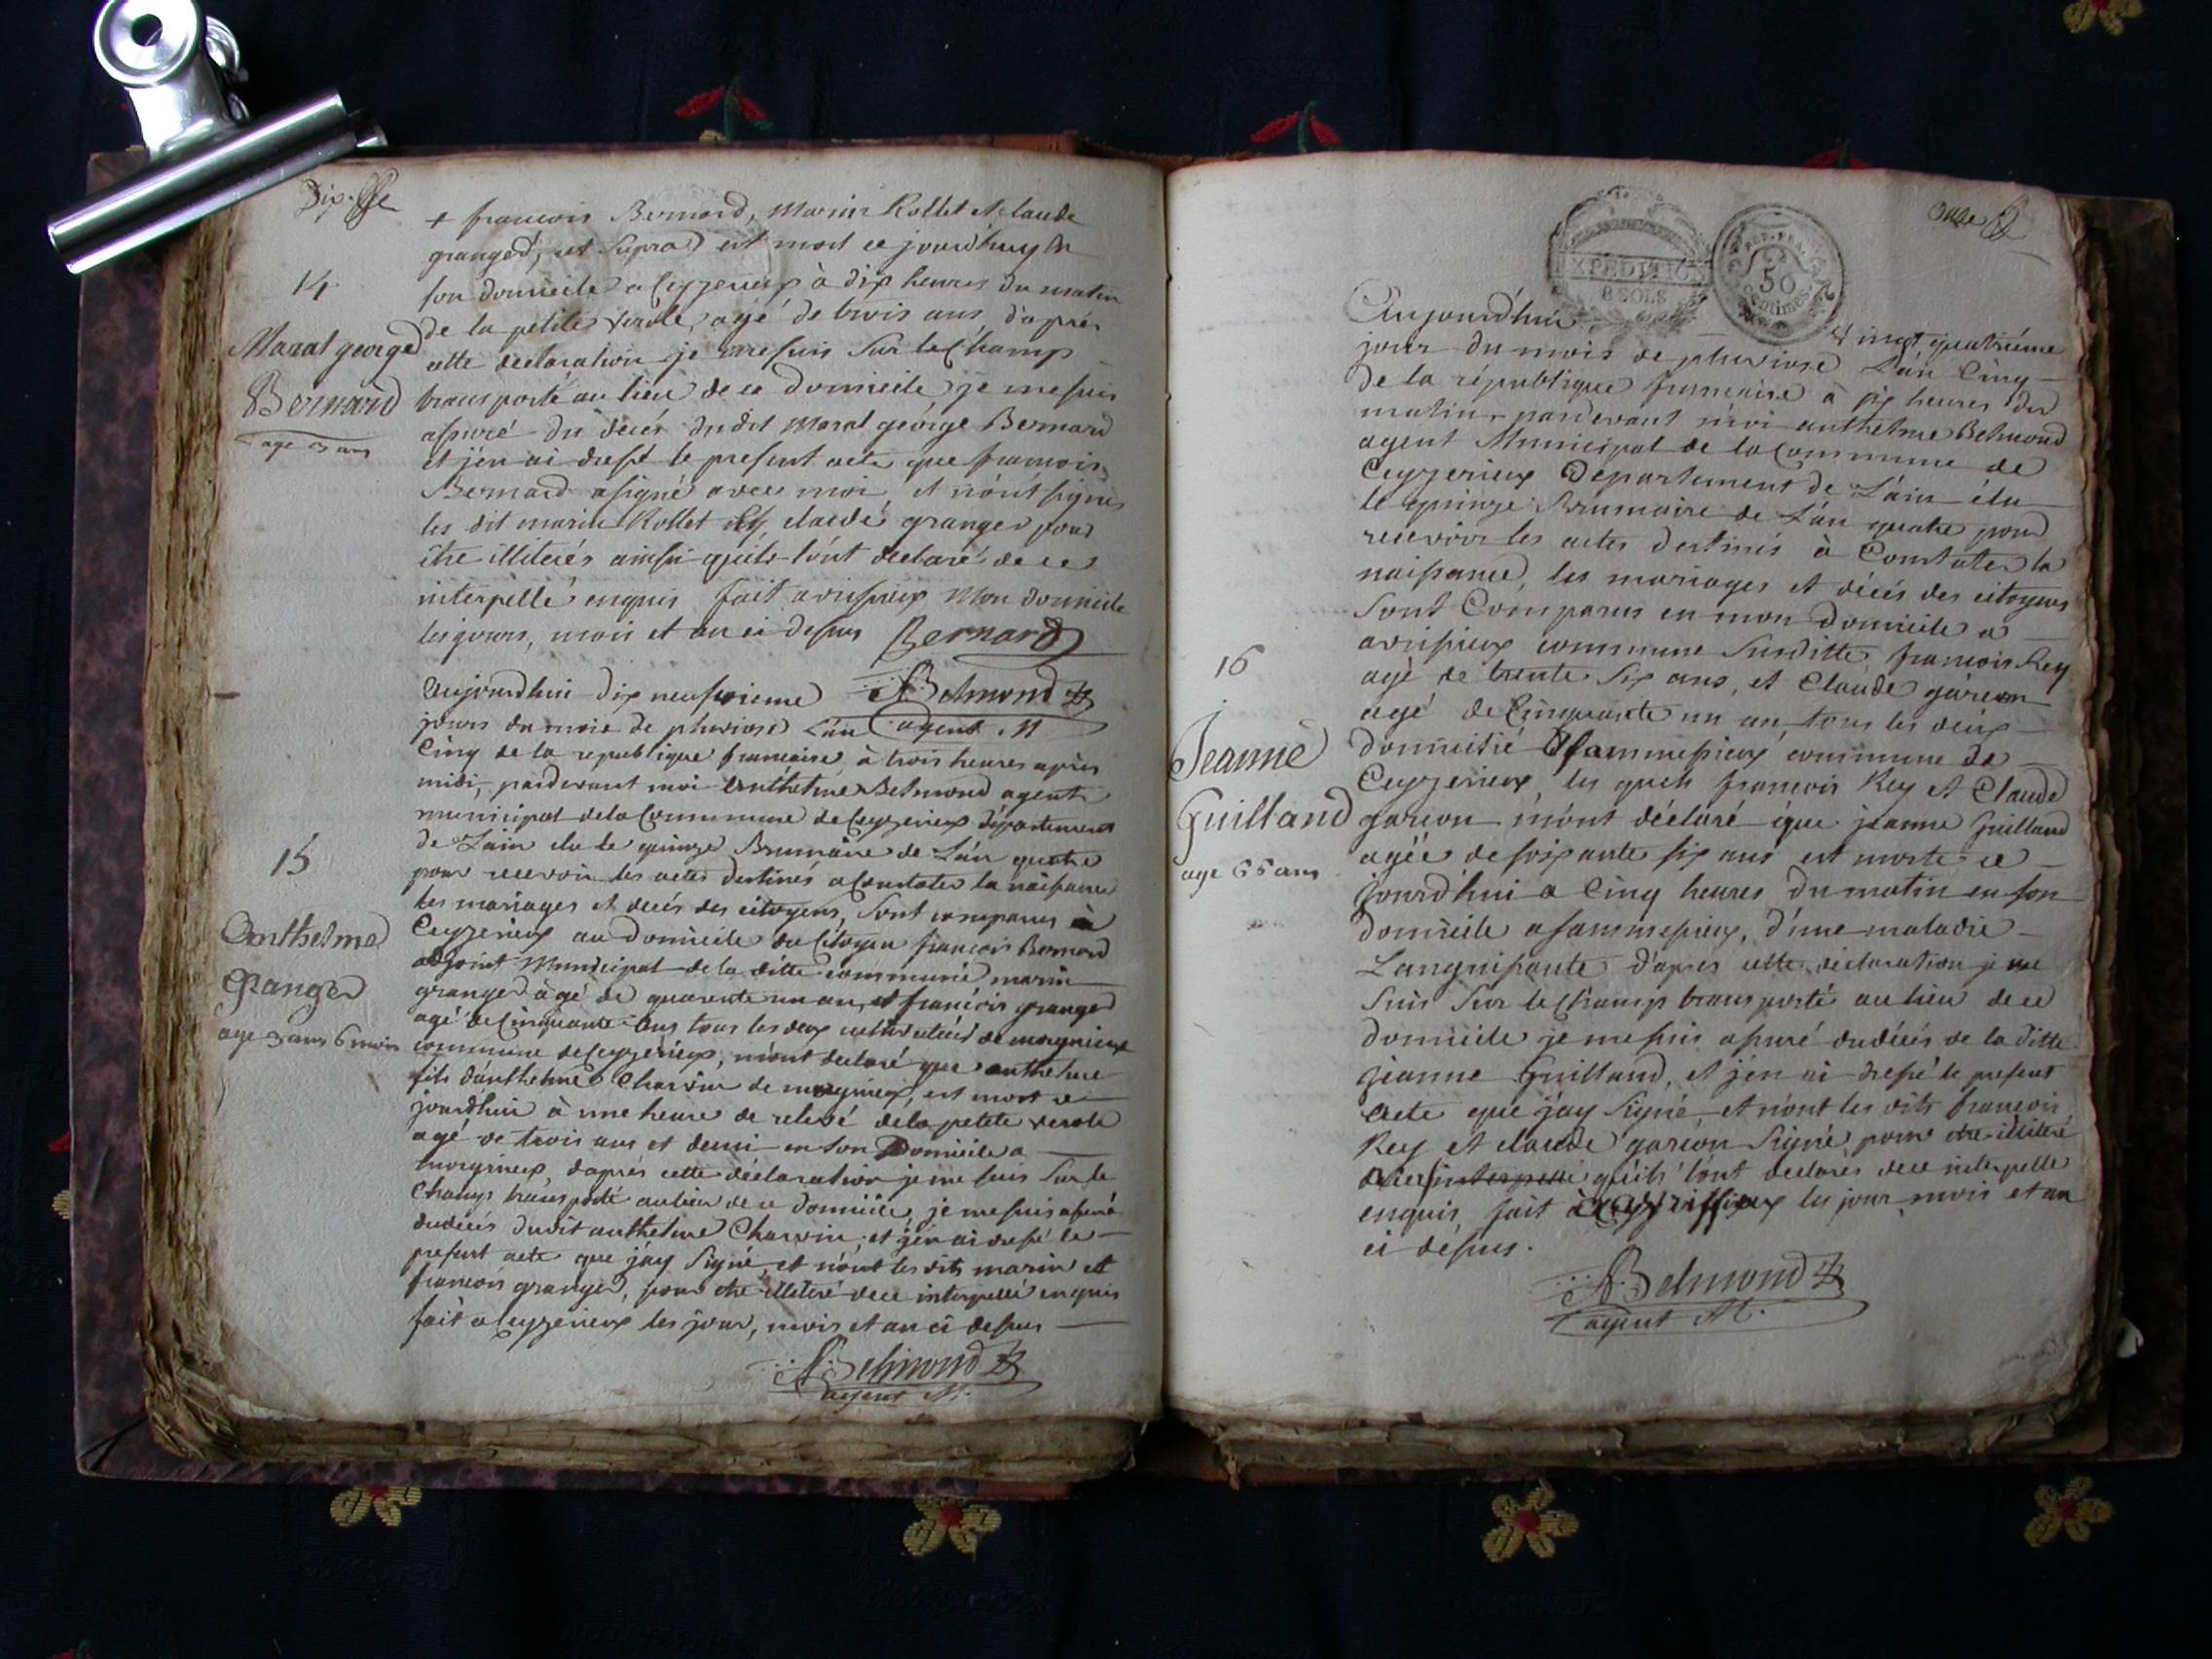 Dix
+ francois Bernard, Marin Rollet et claude
granger, ut supra) est mort ce jourd'huy en
son domicile a Ceyzerieux à dix heures du matin
14
de la petite verole, agé de trois ans, d'aprés
Marat george
Bernard
age 3 ans
cette déclaration je me suis sur le Champ
transporté au lieu de ce domicile je me suis
assuré du décés du dit Marat george Bernard
et j'en ai dressé le present acte que francois
Bernard a signé avec moi, et n'ont signés
les dit marin Rollet et claude granger pour
être illiterés ainsi qu'ils l'ont declaré de ce
interpellé enquis fait a vrisieux Mon domicile
les jours, mois et an ci dessus Bernard
ABelmond
agent M
aujourdhui dix neufvieme
jours du mois de pluviose L'an
Cinq de la republique francaise, à trois heures après
midi, pardevant moi anthelme Belmond agent
municipal de la Commune de Ceyzerieux département
de L'ain elu le quinze Brumaire de L'an quatre
15
pour recevoir les actes destinés a Constater la naissance
les mariages et decés des citoyens, sont comparus à
Anthelme
Granger
age 3 ans 6 mois
Ceyzerieux au domicile du Citoyen francois Bernard
adjoint Municipal de la ditte commune marin
granger âgé de quarente un an, et francois granger
agé de Cinquante ans tous les deux cultivateurs de morgnieux
commune de Ceyzerieux, m'ont declaré que anthelme
fils d'anthelme Charvin de morgnieux, est mort ce
jourdhui à une heure de relevé de la petite verole
agé de trois ans et demi en son Domicile a
morgnieux, d'aprés cette declaration je me suis sur le
Champ transporté au lieu de ce domicile, je me suis assuré
du decés dudit anthelme Charvin, et j'en ai dressé le
present acte que j'ay signé, et n'ont les dits marin et
francois granger, pour etre illiteré de ce interpellé enquis
fait a Ceyzerieux les jour, mois et an ci dessus
ABelmond
agent M.
onze
EXPEDITION
8 SOLS
REP. FRANCAISE
50
Centimes
Aujourd'hui vingt quatriéme
jour du mois de pluviose L'an Cinq
de la république francaise à six heures du
matin, pardevant moi anthelme Belmond
agent Municipal de la Commune de
Ceyzerieux Département de L'ain élu
le quinze Brumaire de L'an quatre pour
recevoir les actes destinés à Constater la
naissance, les mariages et décés des citoyens
sont Comparus en mon domicile a
avrissieux commune susditte, francois Rey
16
agé de trente six ans, et Claude garcon
agé de Cinquante un an, tous les deux
Jeanne
Guilland
age 66 ans
domicilié a sammesieux commune de
Ceyzerieux, les quels francois Rey et Claude
garcon m'ont déclaré que jeanne Guilland
agée de soixante six ans est morte ce
jourd'hui a Cinq heures du matin en son
domicile a sammesieux, d'une maladie
Languissante d'apres cette déclaration je me
suis sur le Champ transporté au lieu de ce
domicile je me suis assuré du décés de la ditte
jeanne Guilland, et j'en ai dressé le present
acte que j'ay signé et n'ont les dits francois
Rey et claude garcon signé pour etre illitéré
interpellé qu'ils l'ont declarés de ce interpellé
enquis, fait à avrissieux les jour, mois et an
ci dessus.
ABelmond
agent M.